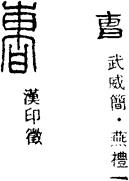 武威簡·燕禮一
漢印徵